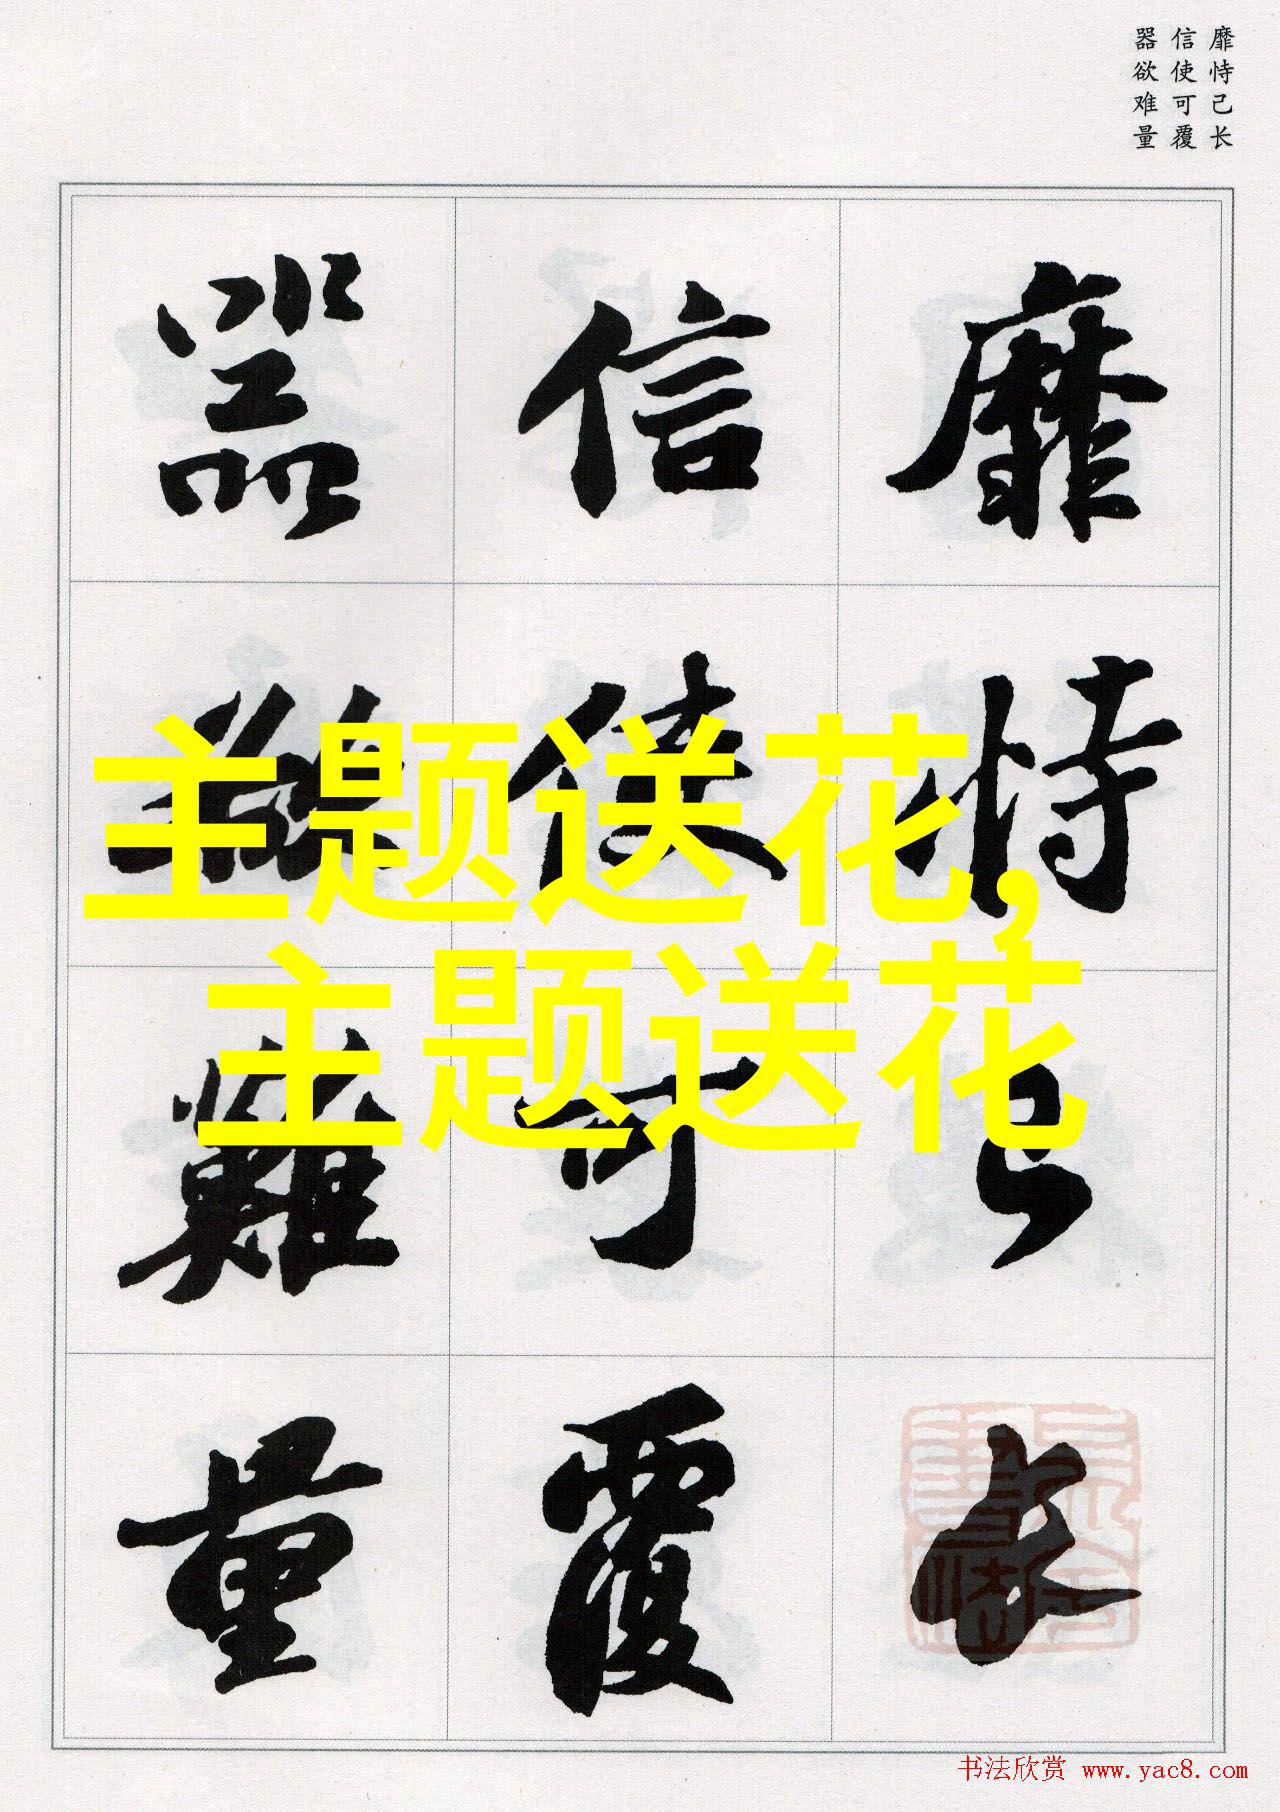 靡恃己长
信使可覆
器欲难量
靡恃己長
信使可覆
器欲難量
主题送花,
主题送花
书法欣赏 www.yac8.com